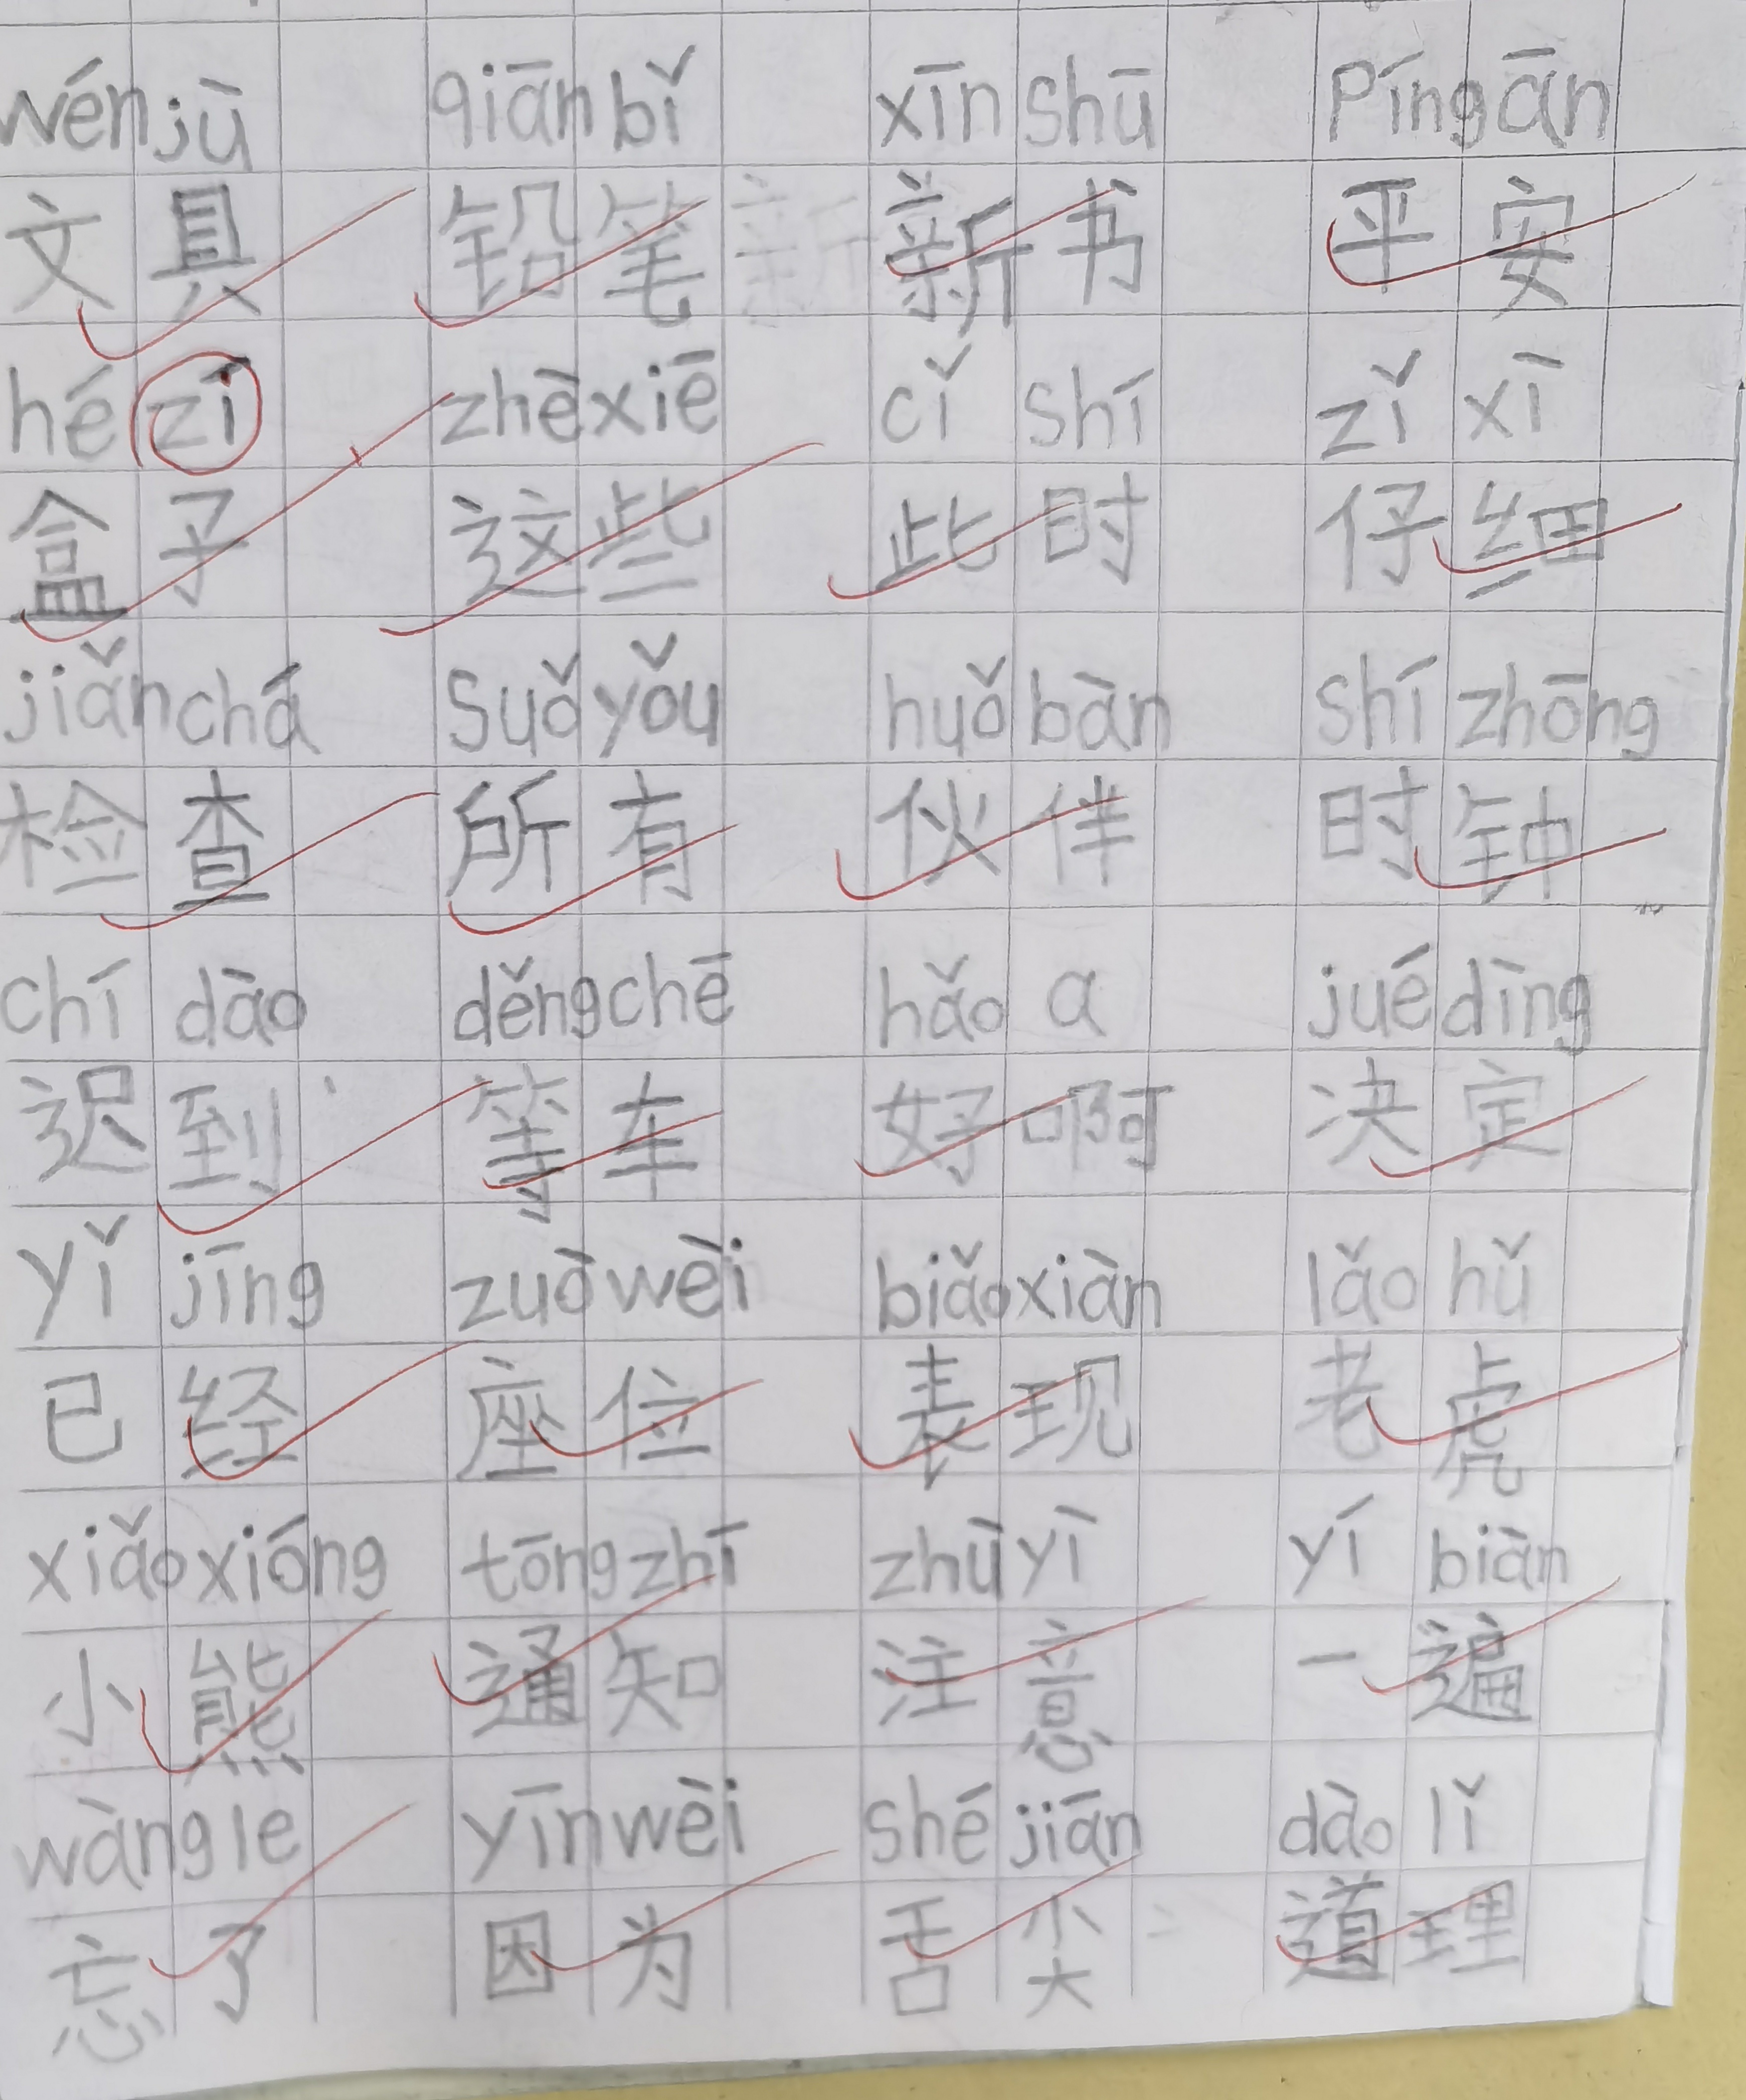 wénjù qiānbǐ xīnshū Píngān
文具 铅笔 新 新书 平安
hé zi zhèxiē cǐ shí zǐ xì
盒子 这些 此时 仔细
jiǎnchá suǒyǒu huǒbàn shí zhōng
检查 所有 伙伴 时钟
chí dào děngchē hǎo a juédìng
迟到 等车 好啊 决定
yǐ jīng zuòwèi biǎoxiàn lǎo hǔ
已经 座位 表现 老虎
xiǎoxióng tōngzhī zhùyì yí biàn
小熊 通知 注意 一遍
wàngle yīnwèi shéjiān dào lǐ
忘了 因为 舌尖 道理